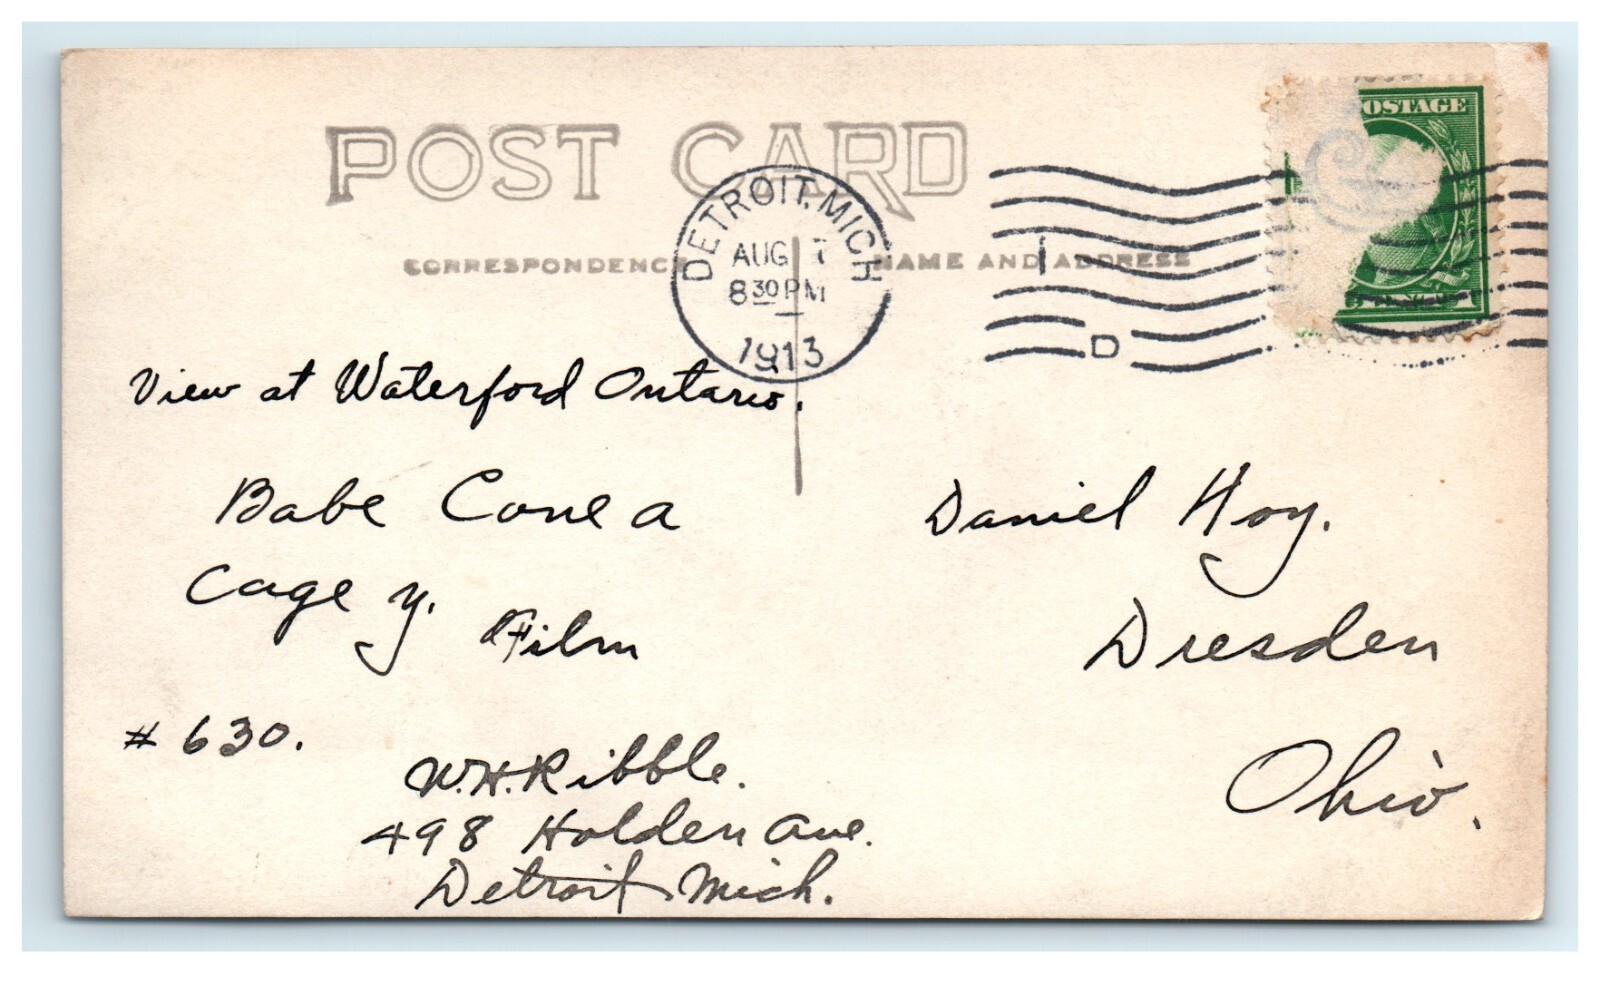 POST CARD
OSTAGE
DETROIT, MICH
AUG 7
8 30 PM
1913
D
CORRESPONDENC
NAME AND ADDRESS
View at Waterford Ontario.
Babe Cone a
Cage y. Film
# 630.
W.H. Ribble.
498 Holden Ave.
Detroit Mich.
Daniel Hoy.
Dresden
Ohio.